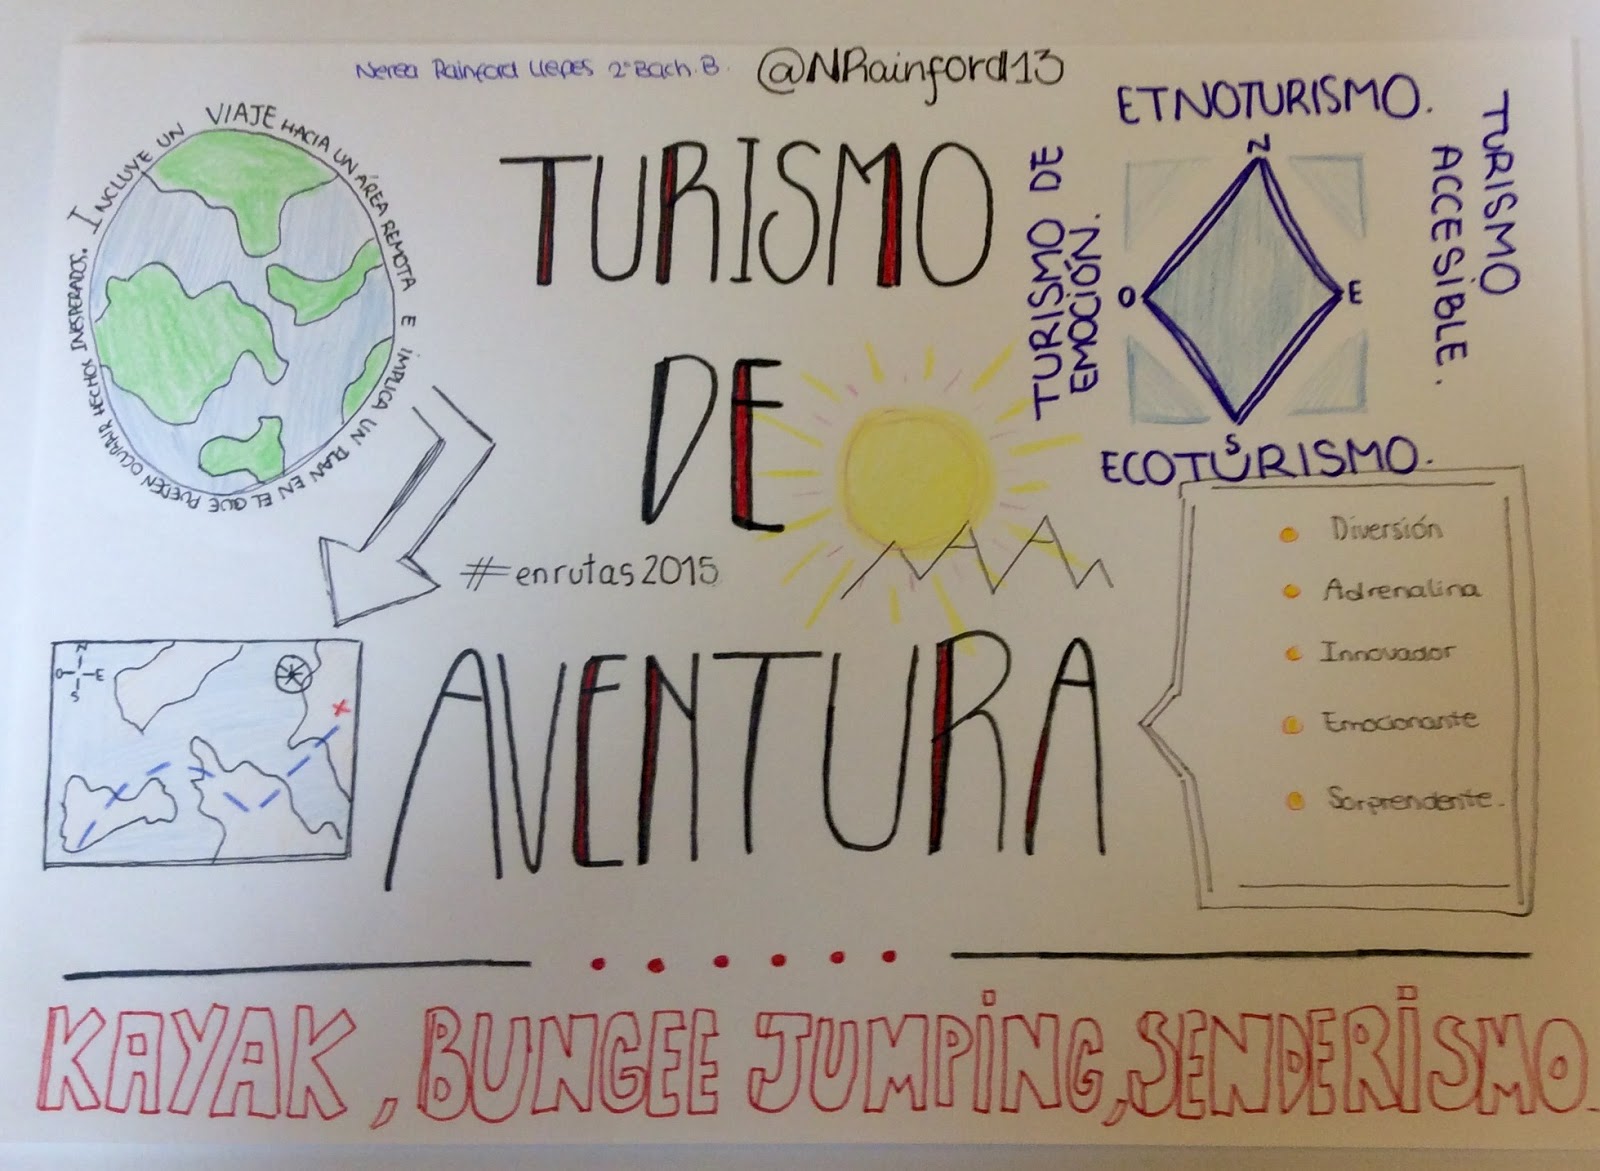 Nerea Rainford Llepes 2º Bach. B.
@NRainford13
INCLUYE UN VIAJE HACIA UN ÁREA REMOTA E IMPLICA UN PLAN EN EL QUE PUEDEN OCURRIR HECHOS INESPERADOS.
TURISMO
DE
AVENTURA
#enrutas2015
ETNOTURISMO.
TURISMO
ACCESIBLE.
TURISMO DE
EMOCIÓN.
N
O
E
S
ECOTURISMO.
Diversión
Adrenalina
Innovador
Emocionante
Sorprendente.
N
O
E
S
X
KAYAK, BUNGEE JUMPING, SENDERISMO.